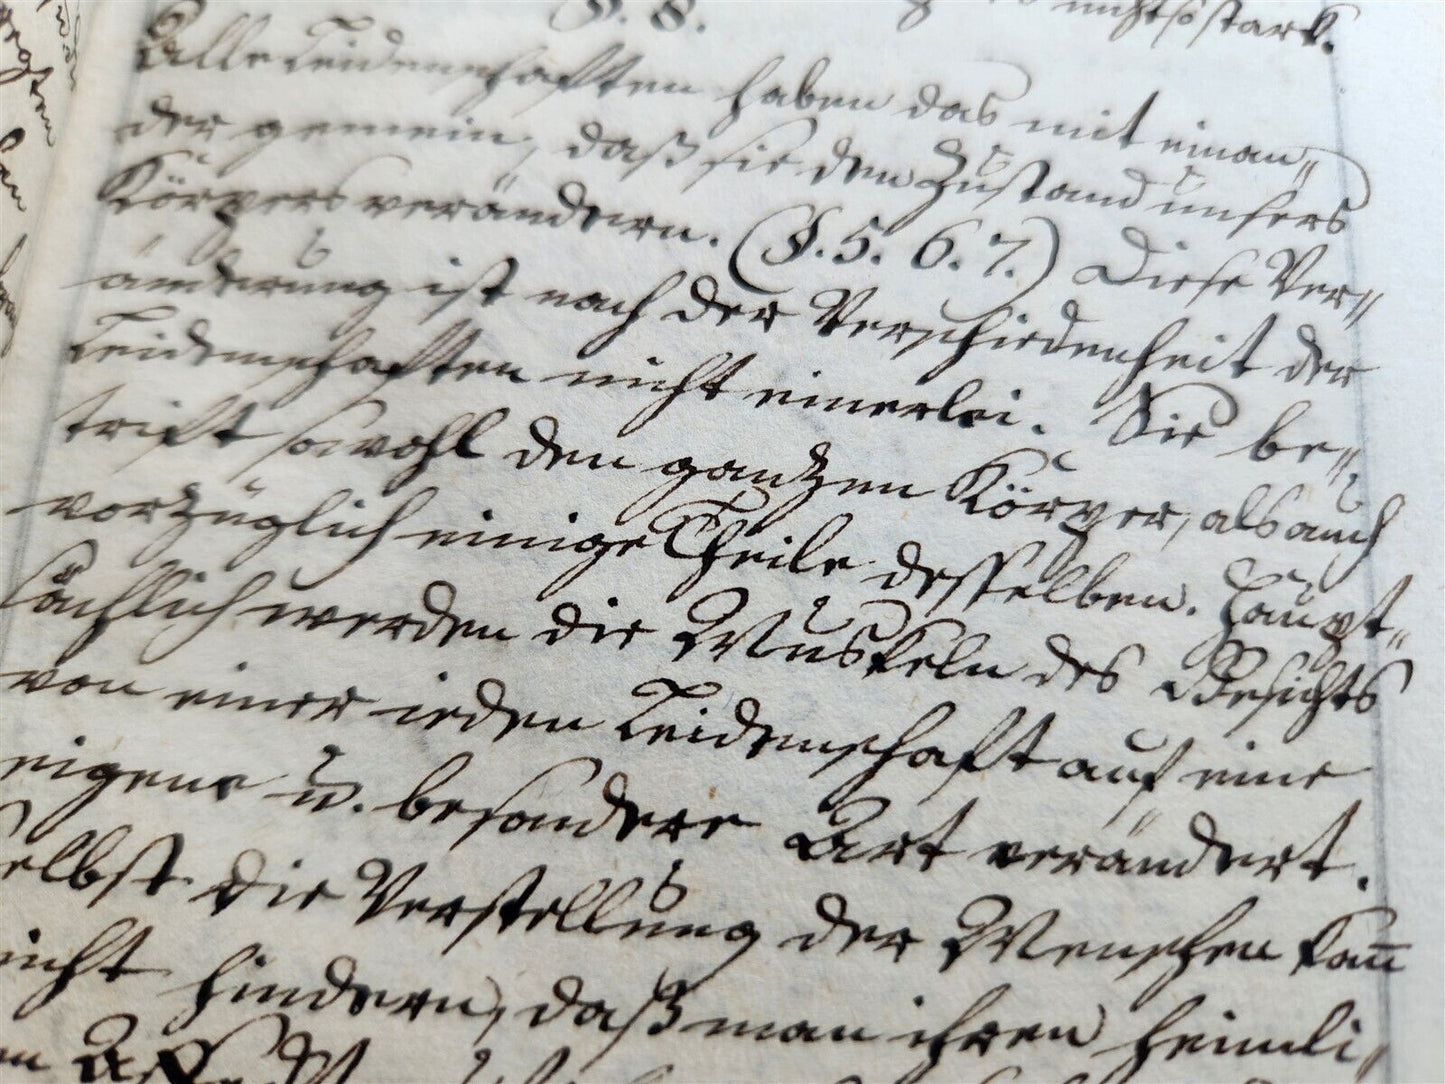 nicht so stark.
§. 8.
Alle Leidenschafften haben das mit einan„
der gemein, daß sie den Zustand unsers
Körpers verändern. (§. 5. 6. 7.) Diese Ver„
änderung ist nach der Verschiedenheit der
Leidenschafften nicht einerlei. Sie be„
trift sowohl den gantzen Körper, als auch
vorzüglich einige Theile desselben. Haupt„
sächlich werden die Muskeln des Gesichts
von einer ieden Leidenschaft auf eine
eigene u. besondere Art verändert.
selbst die Verstellung der Menschen kan̄
nicht hindern, daß man ihren heimli„